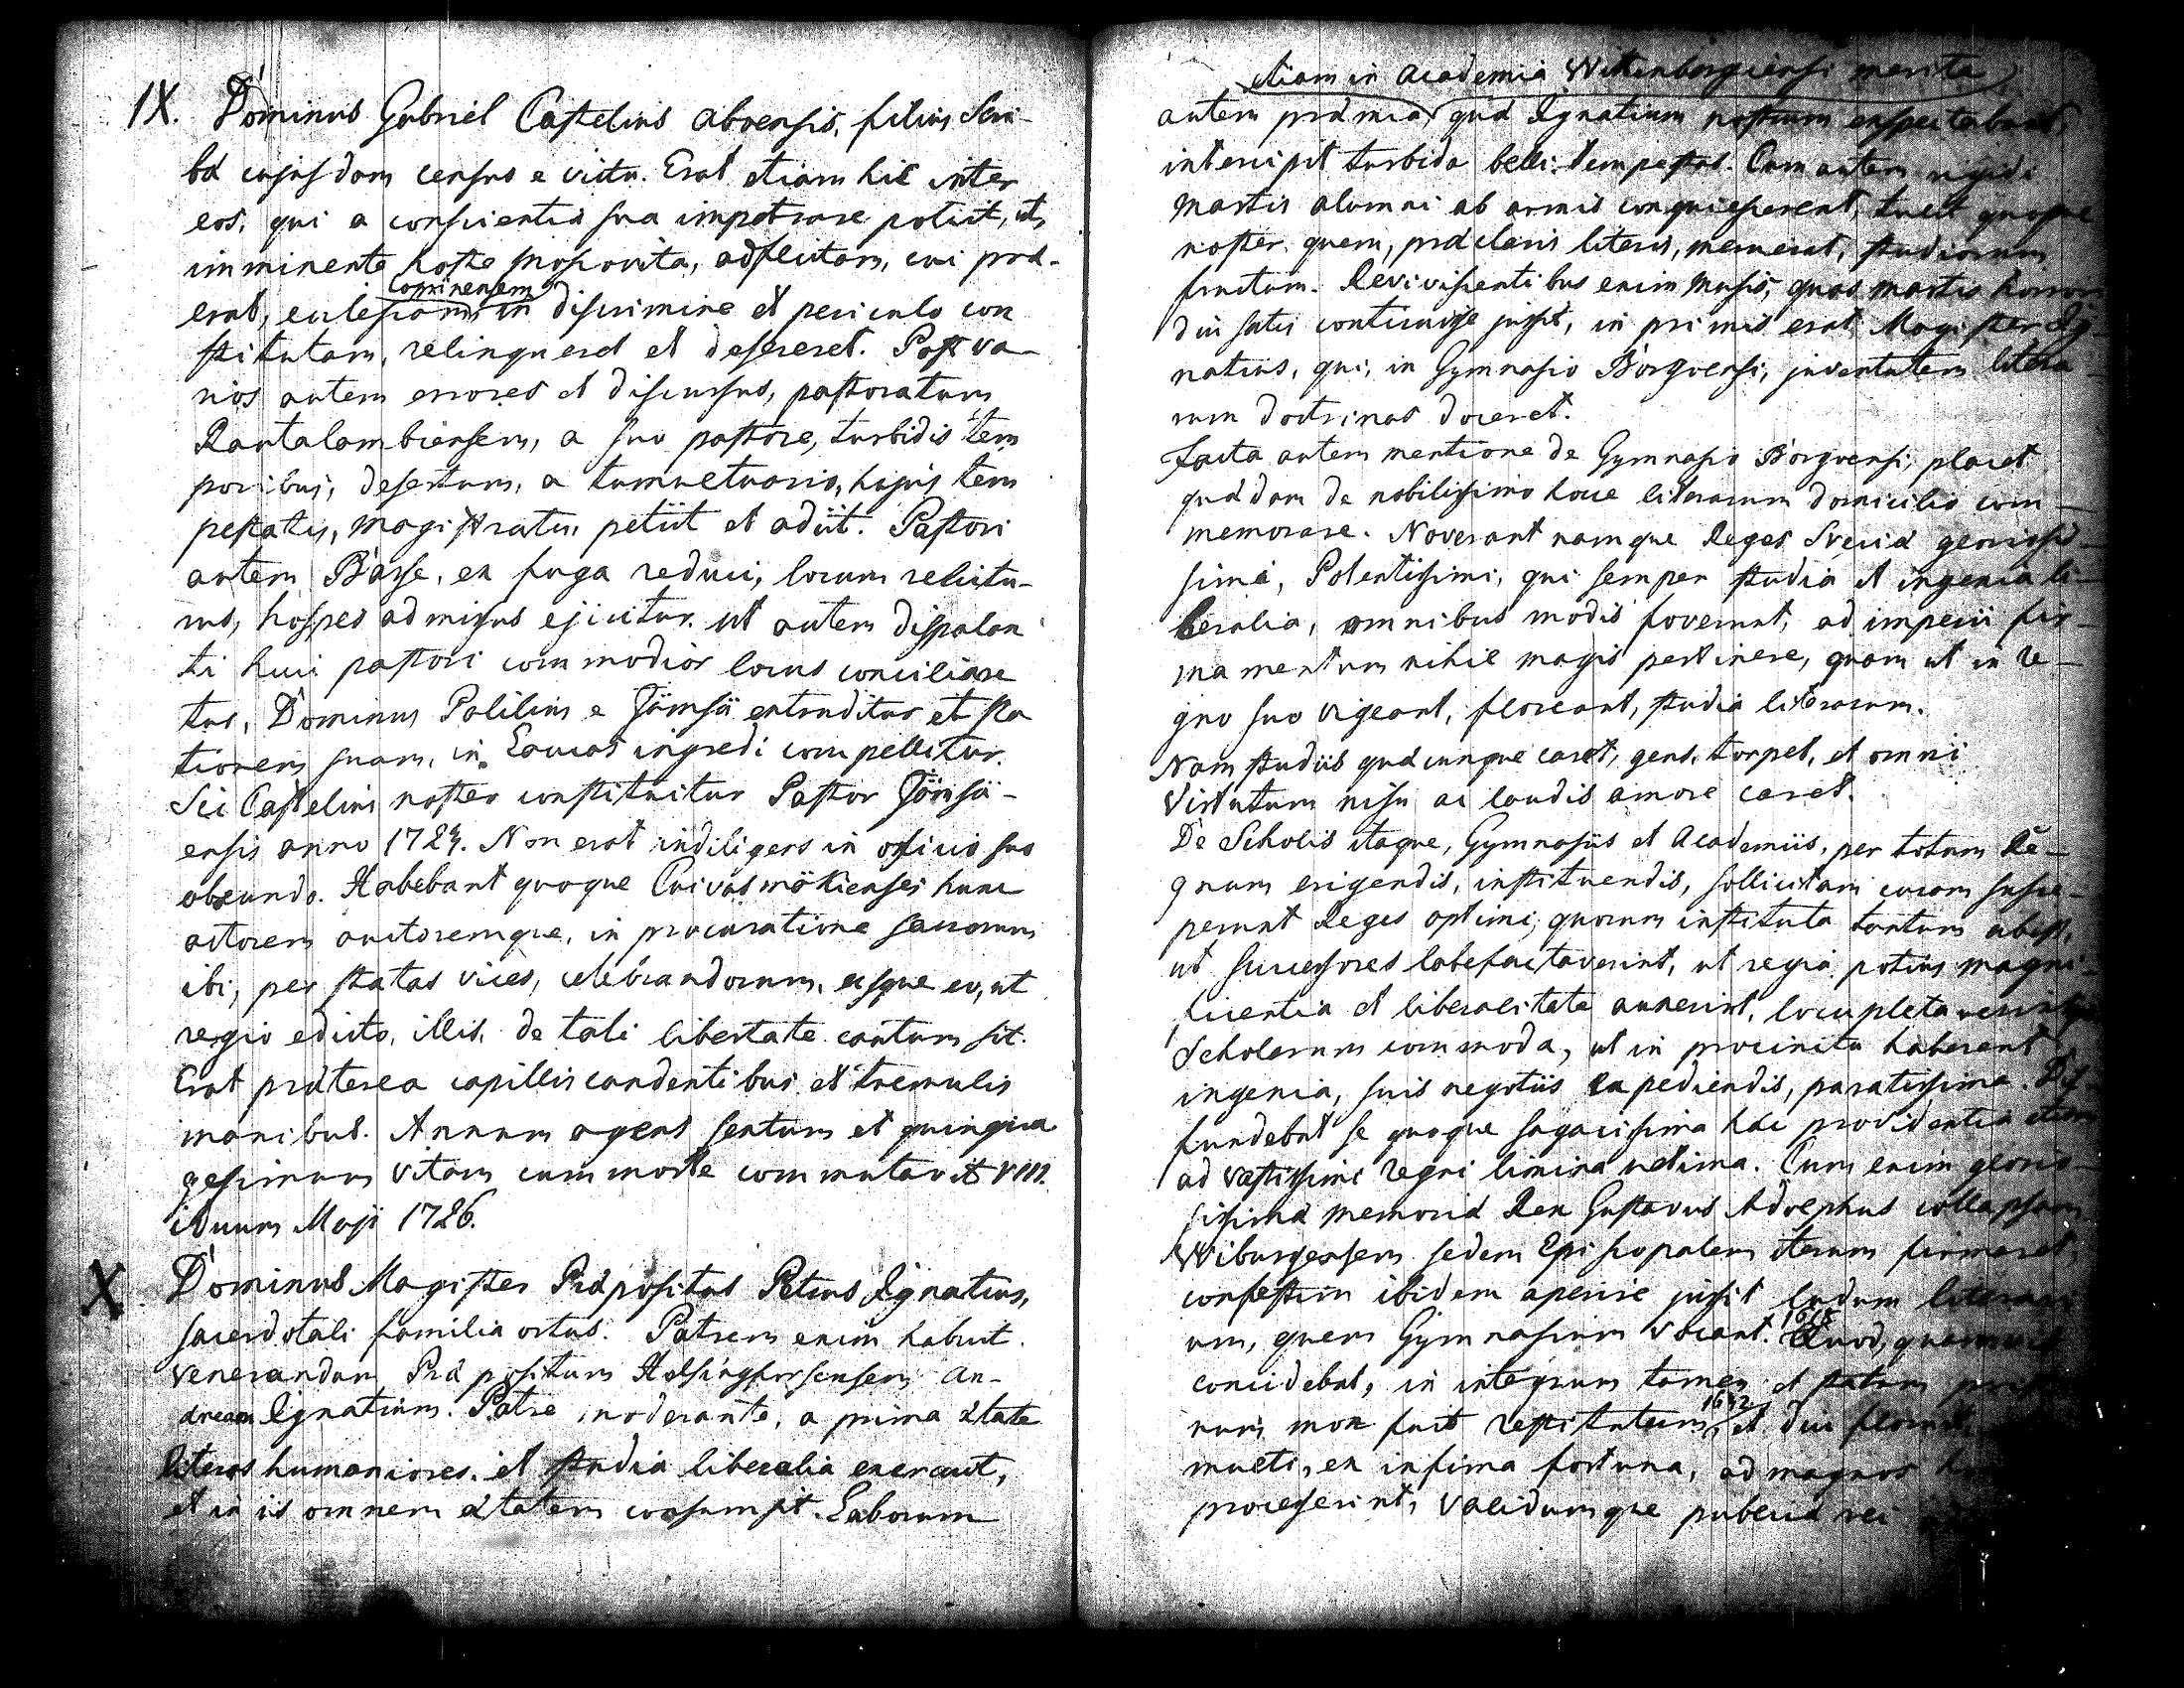 IX. Dominus Gabriel Castelius Aboensis, filius Scri-
bæ cujusdam census e victu. Erat etiam hic inter
eos, qui a conscientia sua impetrare potuit, ut,
imminente hoste Moscovita, adflictam, cui præ-
Coprinensem
erat, eclesiam, in discrimine et periculo con
stitutam, relinqueret et desereret. Post va-
rios autem errores et discursus, pastoratum
Rautalambiensem, a suo pastore, turbidis tem
poribus, desertum, a tumultuario, hujus tem
pestatis, magistratu, petiit et adiit. Pastori
autem Basse, ex fuga reduci, locum relictu-
rus, hospes admissus ejicitur. ut autem dispalan
ti huic pastori commodior locus conciliare
tur, Dominus Polilius e Jömsä extruditur et sta
tionem suam, in Laucas ingredi compellitur.
Sic Castelius noster constituitur Pastor Jömsä-
ensis anno 1724. Non erat indiligens in officio suo
obeundo. Habebant quoque Cuivasmäkienses hunc
actorem auctoremque, in procuratione sacrorum
ibi, per statas vices, celebrandorum, eisque eo, ut
regio edicto, illis, de tali libertate cautum sit.
Erat præterea capillis candentibus et tremulis
manibus. Annum agens sextum et quinqua
gesimum vitam cum morte commutavit VIII.
iduum Maji 1726.
X Dominus Magister Præpositus Petrus Ignatius,
sacerdotali familia ortus. Patrem enim habuit
venerandum Præpositum Helsingforsensem An-
dream Ignatium. Patre moderante, a prima ætate
literas humaniores, et studia liberalia exercuit,
et in iis omnem ætatem consumsit. Laborum
etiam in Academia Wittenbergensi merita
autem præmia, quæ Ignatium nostrum exspectabant,
intercipit turbida belli tempestas. Cum autem rigidi
Martis alumni ab armis conquiescerent, tulit quoque
noster quem, præclaris literis, meruerat, studiorum
fructum. Reviviscentibus enim Musis, quas Martis horror
diu satis conticuisse jussit, in primis erat Magister Ig-
natius, qui, in Gymnasio Borgoensi, juventutem litera-
rum doctrinas doceret.
Facta autem mentione de Gymnasio Borgoensi, placet
quædam de nobilissimo hocce literarum domicilio com-
memorare. Noverant namque Reges Sveciæ gloriosis-
simi, Potentissimi, qui semper studia et ingenia li-
beralia, omnibus modis foverunt, ad imperii fir-
mamentum nihil magis pertinere, quam ut in re-
gno suo vigeant, floreant, studia literarum.
Nam studiis quæcunque caret, gens, torpet, et omni
Virtutum nisu ac laudis amore caret.
De Scholis itaque, Gymnasiis et Academiis, per totum Re-
gnum erigendis, instituendis, sollicitam curam susce-
perunt Reges optimi; quorum instituta tantum abest,
ut successores labefactaverint, ut regia potius magni-
ficentia et liberalitate auxerint, locupletaverintque
Scholarum commoda, ut in procinctu haberent
ingenia, suis negotiis expediendis, paratissima. Dif-
fundebat se quoque sagacissima hæc providentia etiam
ad vastissimi regni limina ultima. Cum enim glorio-
sissimæ memoriæ Rex Gustavus Adolphus collapsam
Wiburgensem sedem Episcopalem iterum firmaret,
confestim ibidem aperire jussit ludum literari
um, quem Gymnasium vocant. Quod,
concidebat, in integrum tamen et statum
num mox fuit restitutum, 1642 et diu floruit,
multi, ex infima fortuna, ad magnos
processerint, validumque publicæ rei